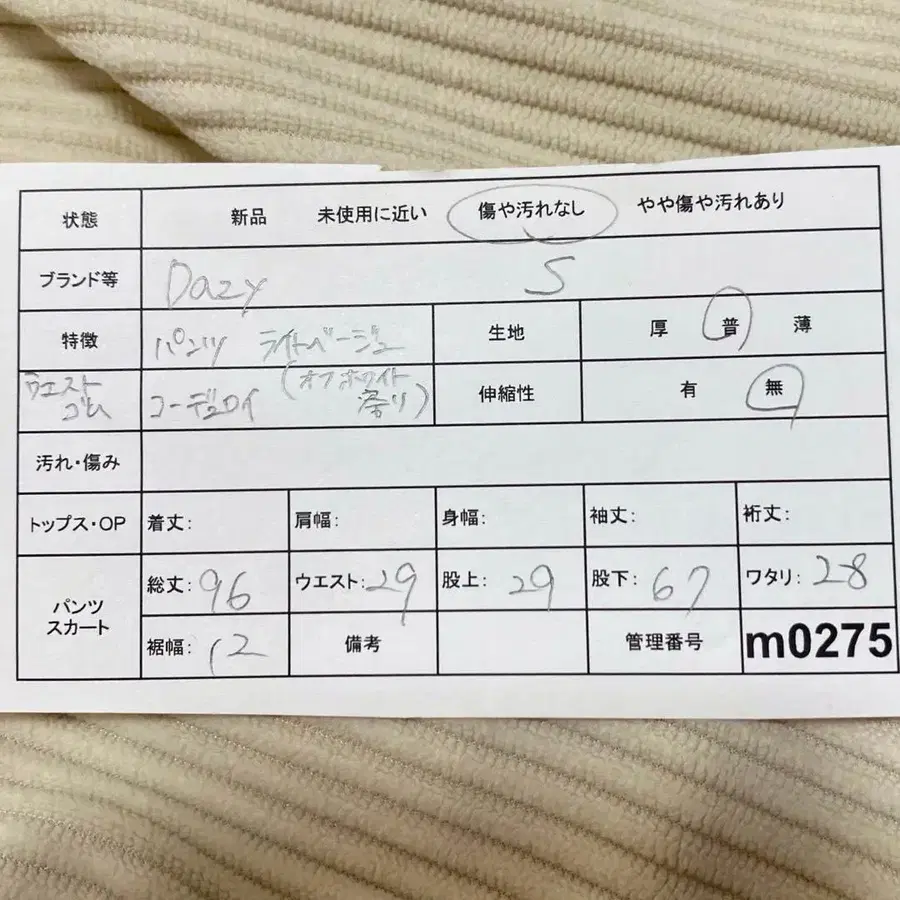 状態 新品 未使用に近い 傷や汚れなし やや傷や汚れあり
ブランド等 Dazy S
特徴 パンツ ライトベージュ 生地 厚 普 薄
ウエストゴム コーデュロイ (オフホワイト寄り) 伸縮性 有 無
汚れ・傷み
トップス・OP 着丈: 肩幅: 身幅: 袖丈: 裄丈:
パンツ スカート 総丈: 96 ウエスト: 29 股上: 29 股下: 67 ワタリ: 28
裾幅: 12 備考 管理番号 m0275